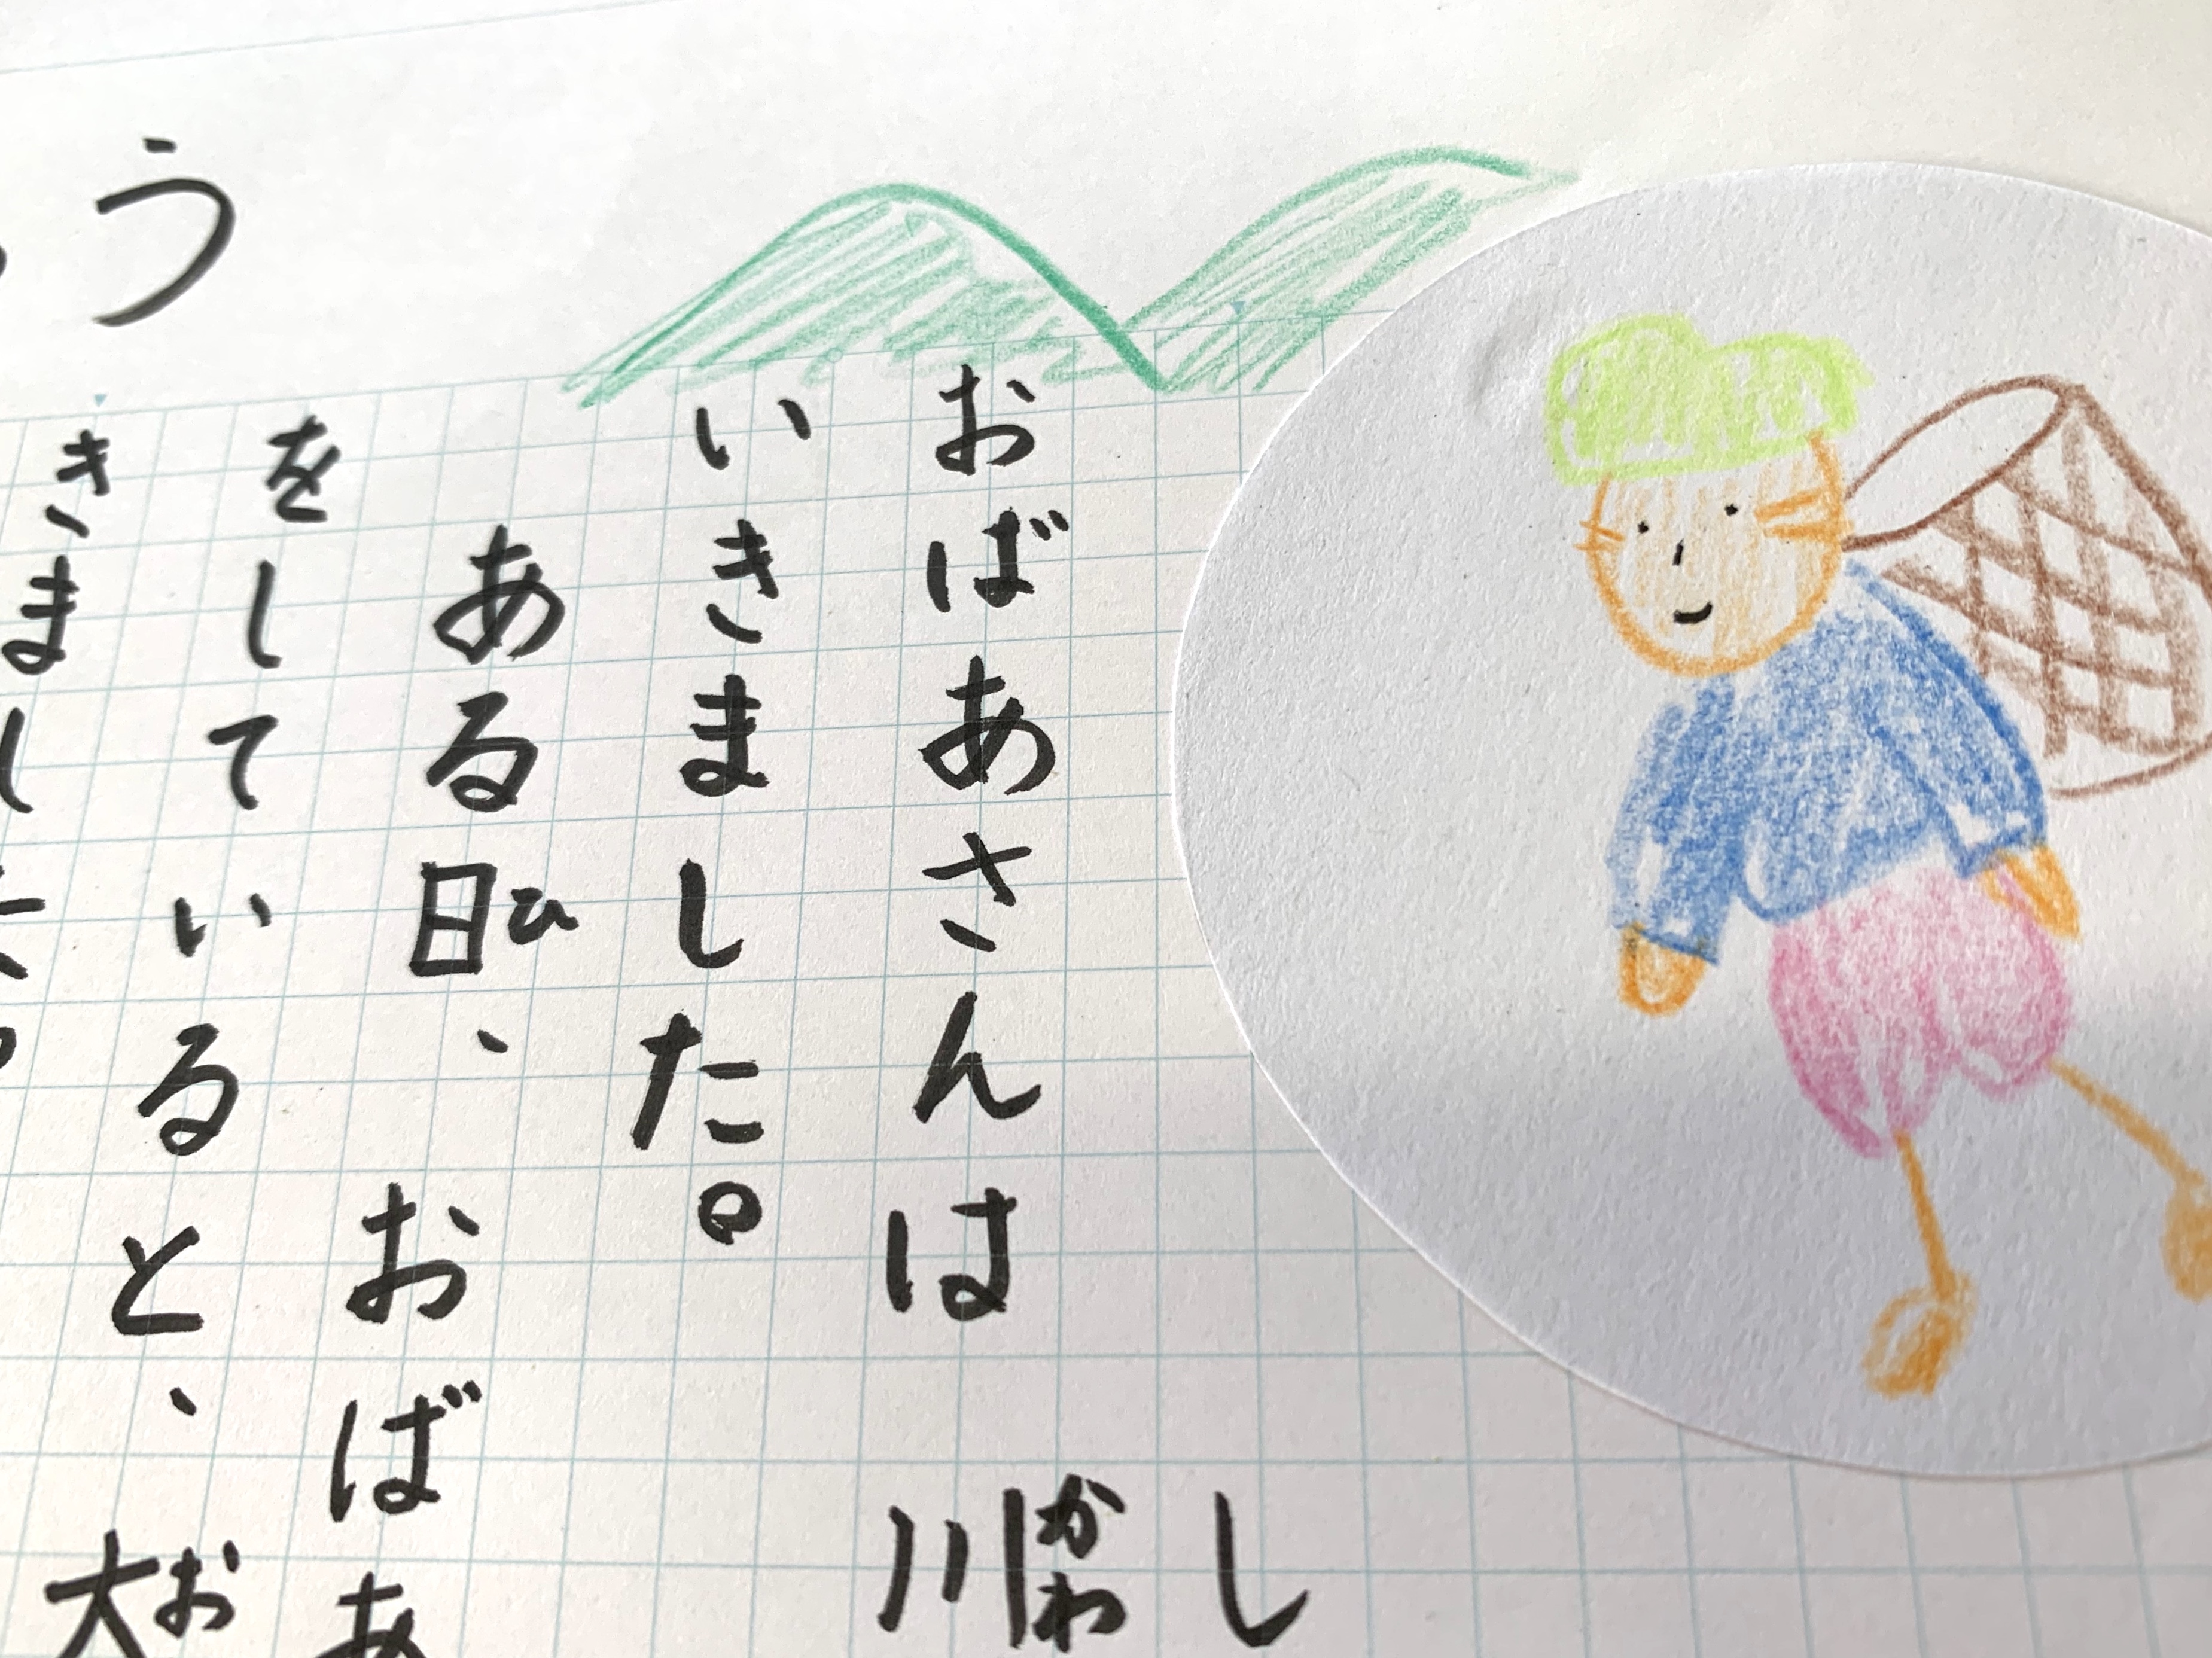 し
おばあさんは 川かわ
いきました。
ある日ひ、おばあ
をしていると、大お
きました
う